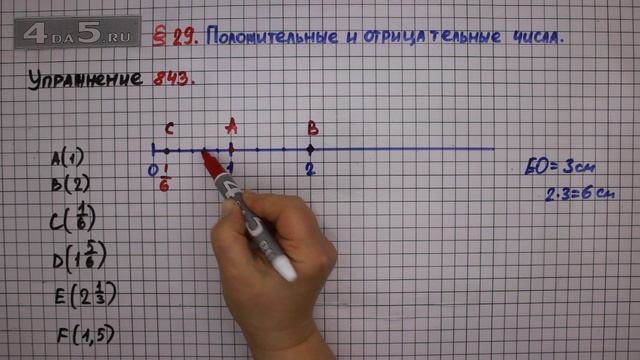 4DA5.RU
§ 29. Положительные и отрицательные числа.
Упражнение 843.
C A B
0 1/6 1 2
A(1)
B(2)
C(1/6)
D(1 5/6)
E(2 1/3)
F(1,5)
ЕО = 3 см
2·3=6 см